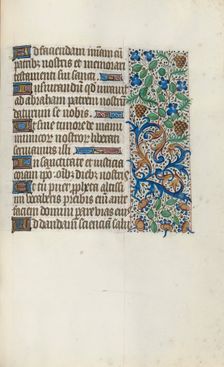 Ad faciendam mïam cū
patribꝫ nostris et memorari
testamenti sui sancti
Iusiurandū qd̄ iurauit
ad abraham patrem nostrū
daturum se nobis
Ut sine timore de manu
inimicor nostror liberati
seruiamus illi
In sanctitate et iusticia
coram ipō oībꝫ diebꝫ nostris
Et tu puer ꝓpheta altissi
mi vocaberis preibis eīm ante
faciem domini parare vias eius
Ad dandam scienciā salutis